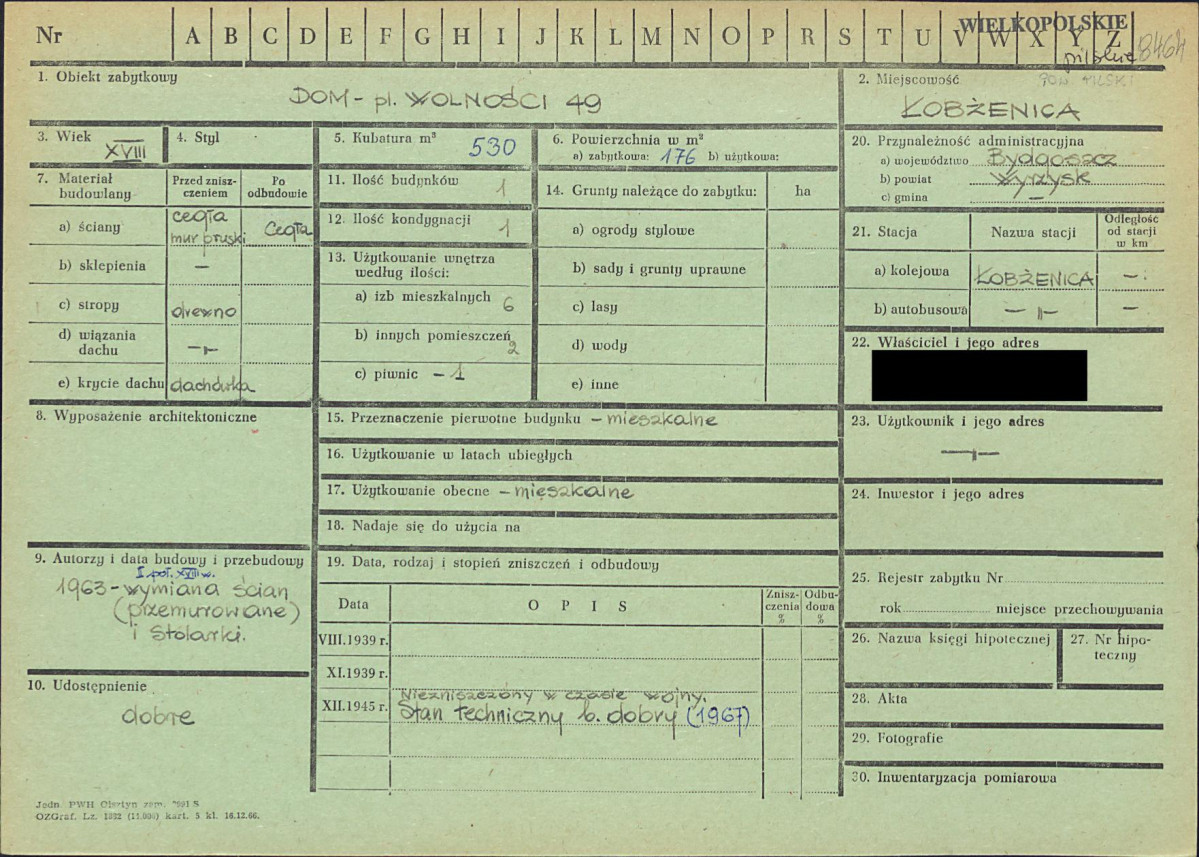 Nr A B C D E F G H I J K L M N O P R S T U V W X Y Z
WIELKOPOLSKIE
pilskie 8464
1. Obiekt zabytkowy
DOM - pl. WOLNOŚCI 49
2. Miejscowość
POW. PILSKI
ŁOBŻENICA
3. Wiek
XVIII
4. Styl
5. Kubatura m³
530
6. Powierzchnia w m²
a) zabytkowa: 176 b) użytkowa:
20. Przynależność administracyjna
a) województwo Bydgoszcz
b) powiat Wyrzysk
c) gmina —
7. Materiał budowlany
Przed zniszczeniem
Po odbudowie
a) ściany
cegła
mur pruski
Cegła
b) sklepienia —
c) stropy drewno
d) wiązania dachu —„—
e) krycie dachu dachówka
11. Ilość budynków 1
12. Ilość kondygnacji 1
13. Użytkowanie wnętrza według ilości:
a) izb mieszkalnych 6
b) innych pomieszczeń 2
c) piwnic – 1
14. Grunty należące do zabytku: ha
a) ogrody stylowe
b) sady i grunty uprawne
c) lasy
d) wody
e) inne
21. Stacja
Nazwa stacji
Odległość od stacji w km
a) kolejowa ŁOBŻENICA —
b) autobusowa —„— —
22. Właściciel i jego adres
8. Wyposażenie architektoniczne
15. Przeznaczenie pierwotne budynku – mieszkalne
16. Użytkowanie w latach ubiegłych
17. Użytkowanie obecne – mieszkalne
18. Nadaje się do użycia na
23. Użytkownik i jego adres
—„—
24. Inwestor i jego adres
9. Autorzy i data budowy i przebudowy
I poł. XVIII w.
1963 – wymiana ścian
(przemurowane)
i stolarki.
19. Data, rodzaj i stopień zniszczeń i odbudowy
Data
OPIS
Zniszczenia %
Odbudowa %
VIII.1939 r.
XI.1939 r.
XII.1945 r.
Niezniszczony w czasie wojny.
Stan techniczny b. dobry (1967)
25. Rejestr zabytku Nr
rok miejsce przechowywania
26. Nazwa księgi hipotecznej
27. Nr hipoteczny
10. Udostępnienie
dobre
28. Akta
29. Fotografie
30. Inwentaryzacja pomiarowa
Jedn. PWH Olsztyn zam. 7991 S
OZGraf. Lz. 1332 (11.000) kart. 5 kl. 16.12.66.